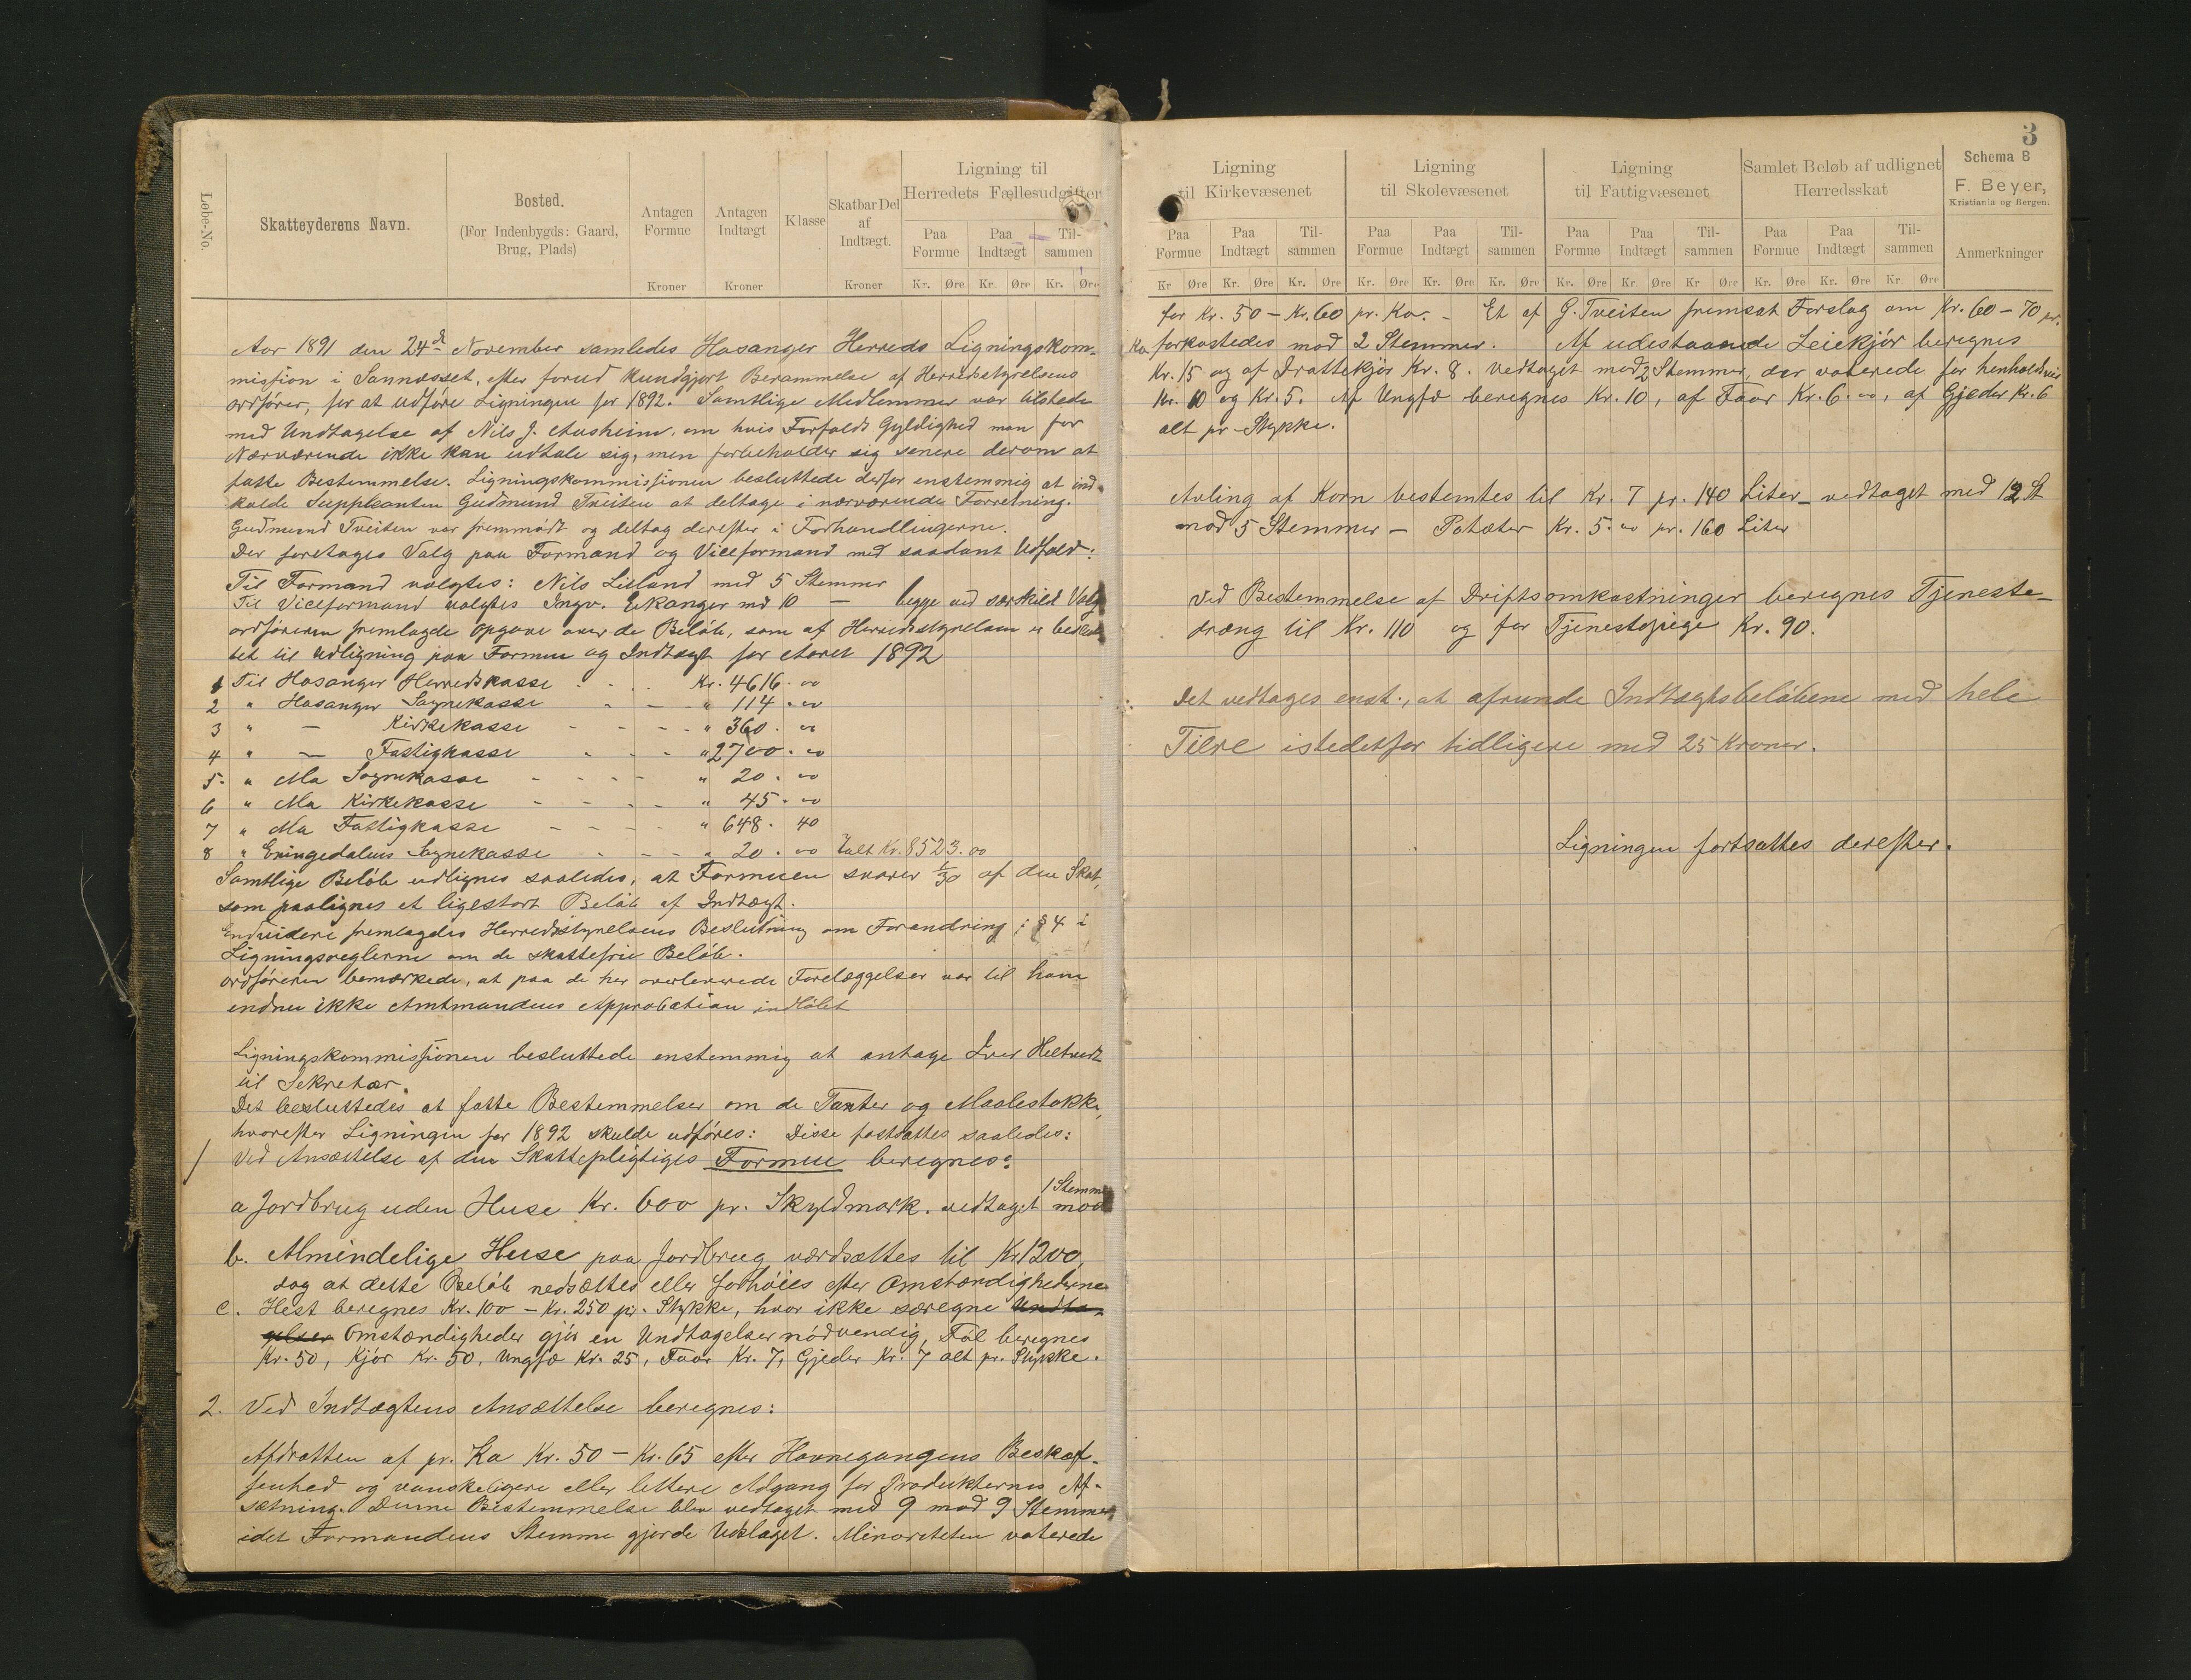 Løbe-No.
Skatteyderens Navn.
Bosted.
(For Indenbygds: Gaard, Brug, Plads)
Antagen Formue
Kroner
Antagen Indtægt
Kroner
Klasse
Skatbar Del af Indtægt.
Kroner
Ligning til Herredets Fællesudgifter
Paa Formue Paa Indtægt Til-sammen
Kr. Øre Kr. Øre Kr. Øre
Aar 1891 den 24d November samledes Hosanger Herreds Ligningskom-
mission i Sannæsset, efter forud kundgjort Berammelse af Herredsstyrelsens
ordfører, for at udføre Ligningen for 1892. Samtlige Medlemmer var tilstede
med Undtagelse af Nils J. Ausheim, om hvis Forfalds Gyldighed man for
Nærværende ikke kan udtale sig, men forbeholder sig senere derom at
fatte Bestemmelse. Ligningskommissionen besluttede derfor enstemmig at ind-
kalde Suppleanten Gudmund Tveiten at deltage i nærværende Forretning.
Gudmund Tveiten var fremmødt og deltog derefter i Forhandlingerne.
Der foretages Valg paa Formand og Viceformand med saadant Udfald:
Til Formand valgtes: Nils Lilland med 5 Stemmer
Til Viceformand valgtes Ingv. Eikanger md 10 — begge ved særskild Valg
ordføreren fremlagde Opgave over de Beløb, som af Herredsstyrelsen er beslut-
tet til Udligning paa Formue og Indtægt for Aaret 1892
1 Til Hosanger Herredskasse . . . Kr. 4616.00
2 " Hosanger Sognekasse . - - " 114.00
3 " — Kirkekasse - - - - " 360.00
4 " — Fattigkasse . . . " 2700.00
5. " Mo Sognekasse - - - - " 20.00
6 " Mo Kirkekasse - - - - " 45.00
7 " Mo Fattigkasse - - - - " 648.40
8 " Eningedalens Sognekasse . - - " 20.00 Ialt Kr. 8523.00
Samtlige Beløb udlignes saaledes, at Formuen svarer 1/30 af den Skat,
som paalignes et ligestort Beløb af Indtægt.
Endvidere fremlagdes Herredsstyrelsens Beslutning om Forandring i § 4 i
Ligningsreglerne om de skattefrie Beløb.
ordføreren bemærkede, at paa de her overleverede Forelæggelser var til ham
endnu ikke Amtmandens Approbation indløbet
Ligningskommissionen besluttede enstemmig at antage Iver Heltvedt
til Sekretær.
Det besluttedes at fatte Bestemmelser om de Taxter og Maalestokke,
hvorefter Ligningen for 1892 skulde udføres: Disse fastsattes saaledes:
1 Ved Ansættelse af den Skattepligtiges Formue beregnes:
a Jordbrug uden Huse Kr. 600 pr. Skyldmark. vedtaget mod 1 Stemme
b. Almindelige Huse paa Jordbrug værdsættes til Kr 1200,
dog at dette Beløb nedsættes eller forhøies efter Omstændighederne
c. Hest beregnes Kr. 100 – Kr. 250 pr. Stykke, hvor ikke særegne Undta-
gelser Omstændigheder gjør en Undtagelser nødvendig, Føl beregnes
Kr. 50, Kjør Kr. 50, Ungfæ Kr. 25, Faar Kr. 7, Gjeder Kr. 7 alt pr. Stykke.
2. Ved Indtægtens Ansættelse beregnes:
Afdrotten af pr. Ko Kr. 50 – Kr. 65 efter Havnegangens Beskaf-
fenhed og vanskeligere eller lettere Adgang for Produkternes Af-
sætning. Denne Bestemmelse blev vedtaget med 9 mod 9 Stemmer
idet Formandens Stemme gjorde Udslaget. Minoriteten voterede
3
Ligning til Kirkevæsenet
Ligning til Skolevæsenet
Ligning til Fattigvæsenet
Samlet Beløb af udlignet Herredsskat
Schema B
F. Beyer,
Kristiania og Bergen.
Paa Formue Paa Indtægt Til-sammen Paa Formue Paa Indtægt Til-sammen Paa Formue Paa Indtægt Til-sammen Paa Formue Paa Indtægt Til-sammen
Anmerkninger
Kr Øre Kr. Øre Kr. Øre Kr. Øre Kr. Øre Kr. Øre Kr. Øre Kr. Øre Kr Øre Kr. Øre Kr. Øre Kr. Øre
for Kr. 50 – Kr. 60 pr. Ko. – Et af G. Tveiten fremsat Forslag om Kr. 60 – 70 pr.
Ko forkastedes mod 2 Stemmer. Af udestaaende Leiekjør beregnes
Kr. 15 og af Drattekjør Kr. 8. vedtaget mod 2 Stemmer, der voterede for henholdsvis
Kr. 10 og Kr. 5. Af Ungfæ beregnes Kr. 10, af Faar Kr. 6.00, af Gjeder Kr. 6
alt pr. Stykke.
Avling af Korn bestemtes til Kr. 7 pr. 140 Liter – vedtaget med 12 St
mod 5 Stemmer – Potæter Kr. 5.00 pr. 160 Liter
Ved Bestemmelse af Driftsomkostninger beregnes Tjeneste-
dræng til Kr. 110 og for Tjenestepige Kr. 90.
Det vedtages enst., at afrunde Indtægtsbeløbene med hele
Tiere istedetfor tidligere med 25 Kroner.
Ligningen fortsattes derefter.